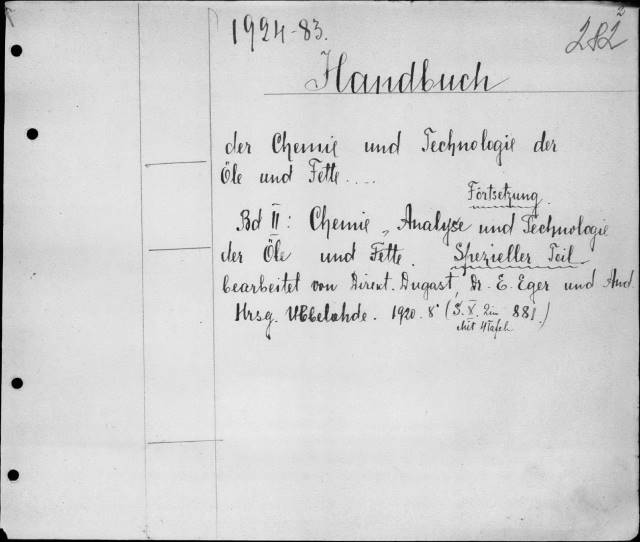 1924-83.
282²
Handbuch
der Chemie und Technologie der
Öle und Fette....
Fortsetzung.
Bd II: Chemie, Analyse und Technologie
der Öle und Fette. Spezieller Teil
bearbeitet von Direkt. Dugast, Dr. E. Eger und And.
Hrsg. Ubbelohde. 1920. 8° (S. X. 881.)
Mit 4 Tafeln